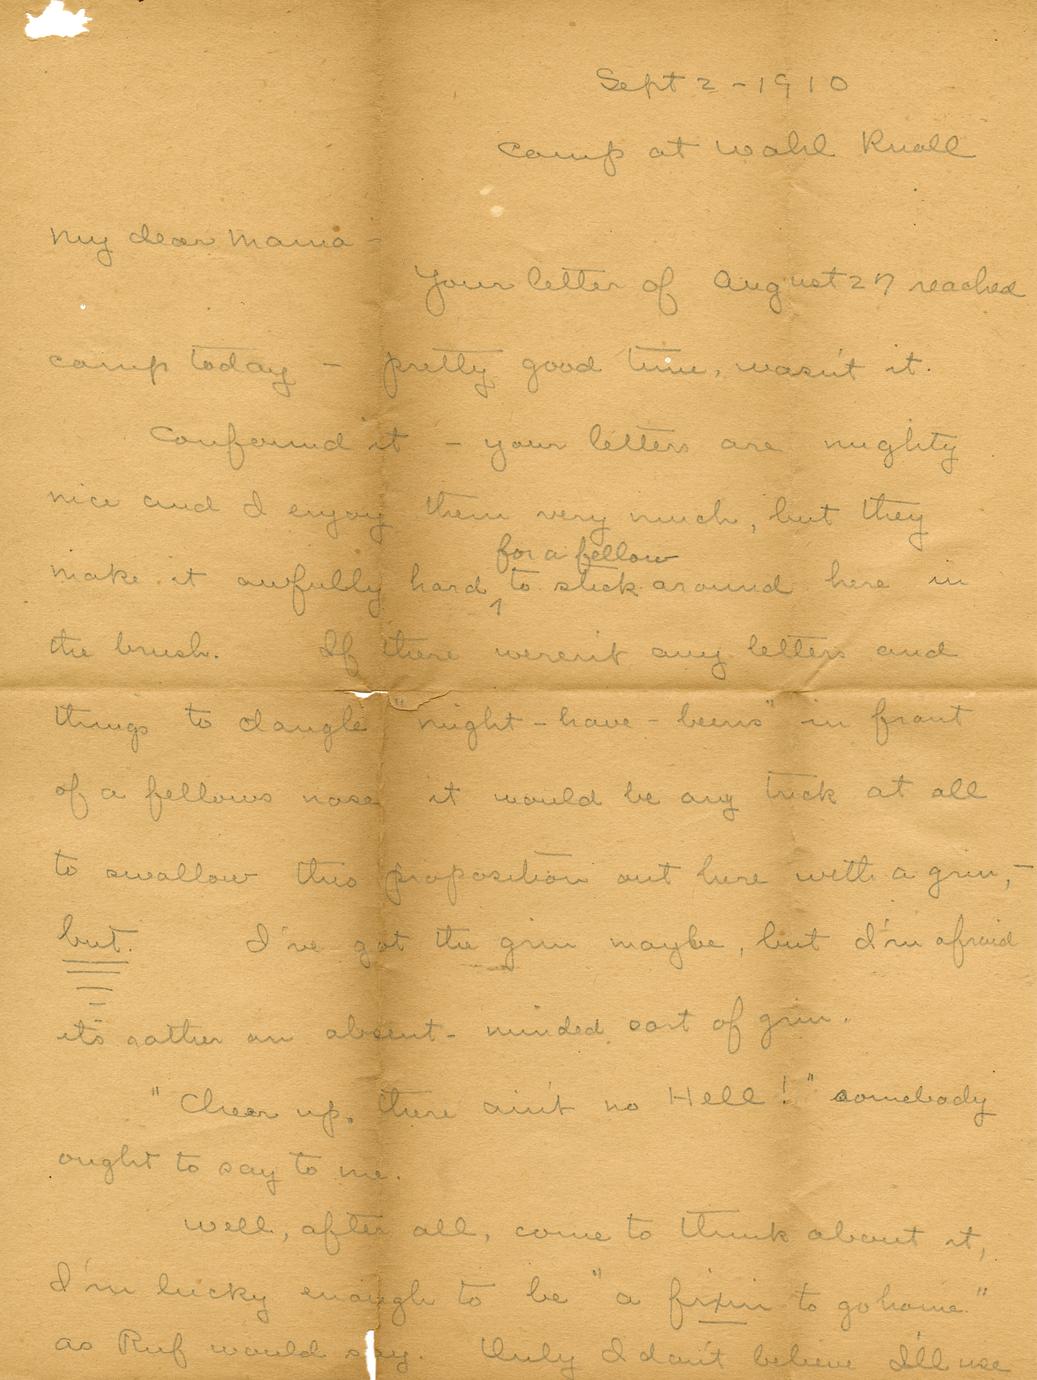 Sept 2 - 1910
Camp at Wahl Knoll
My dear Mama -
Your letter of August 27 reached
camp today - pretty good time, wasn't it.
Confound it - your letters are mighty
nice and I enjoy them very much, but they
for a fellow
make it awfully hard ^ to stick around here in
the brush. If there weren't any letters and
things to dangle "might-have-beens" in front
of a fellows nose it would be any trick at all
to swallow this proposition out here with a grin, -
but. I've got the grin maybe, but I'm afraid
its rather an absent-minded sort of grin.
"Cheer up, there ain't no Hell!" somebody
ought to say to me.
Well, after all, come to think about it,
I'm lucky enough to be "a fixin to go home"
as Ruf would say. Only I don't believe I'll use